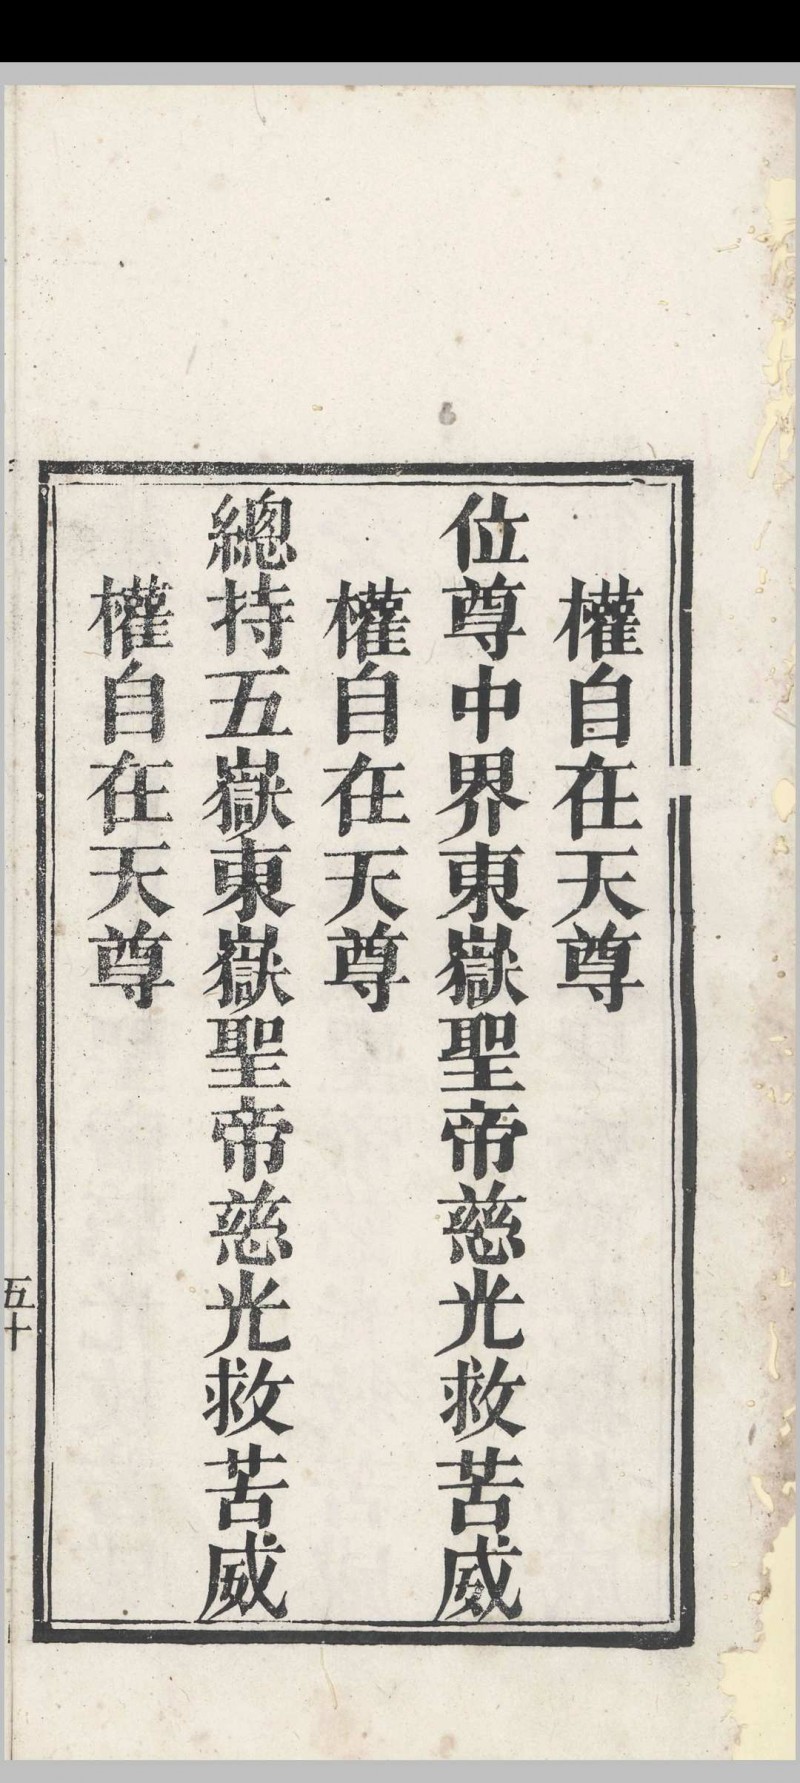 權自在天尊
位尊中界東嶽聖帝慈光救苦威
權自在天尊
總持五嶽東嶽聖帝慈光救苦威
權自在天尊
五十